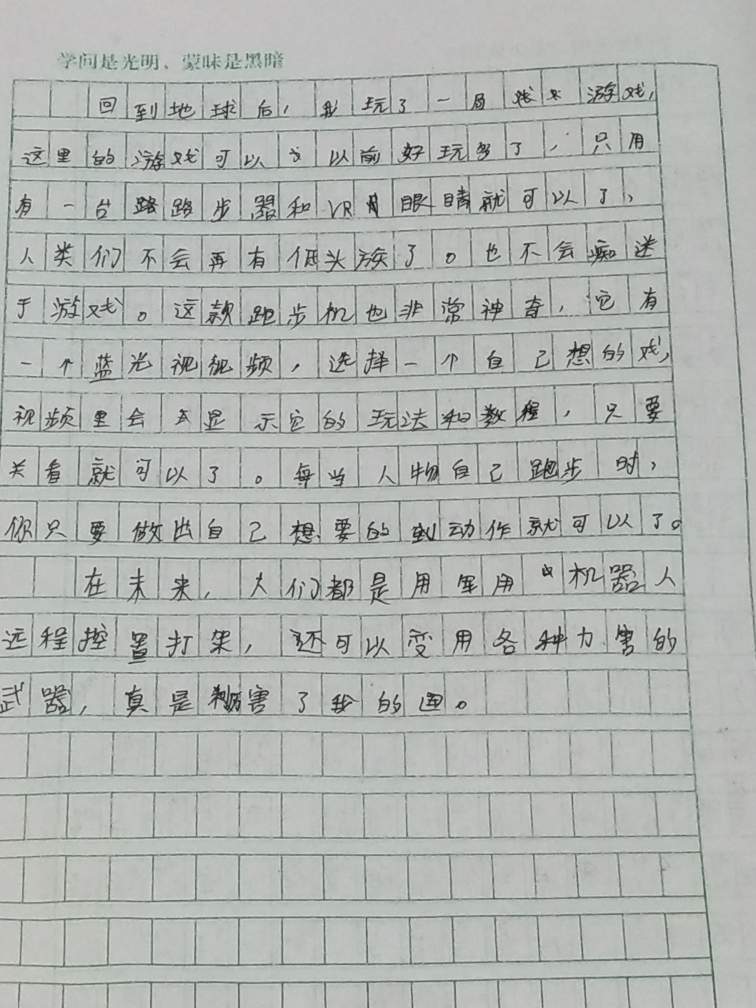 学问是光明、蒙昧是黑暗
回到地球后,我玩了一局游戏,
这里的游戏可以以前好玩多了,只用
有一台路跑步器和VR眼睛就可以了,
人类们不会再有低头族了。也不会痴迷
于游戏。这款跑步机也非常神奇,它有
一个蓝光视频,选择一个自己想的戏,
视频里会显示它的玩法和教程,只要
关看就可以了。每当人物自己跑步时,
你只要做出自己想要的动作就可以了。
在未来,大们都是用军用机器人
远程控置打架,还可以变用各种力害的
武器,真是厉害了我的